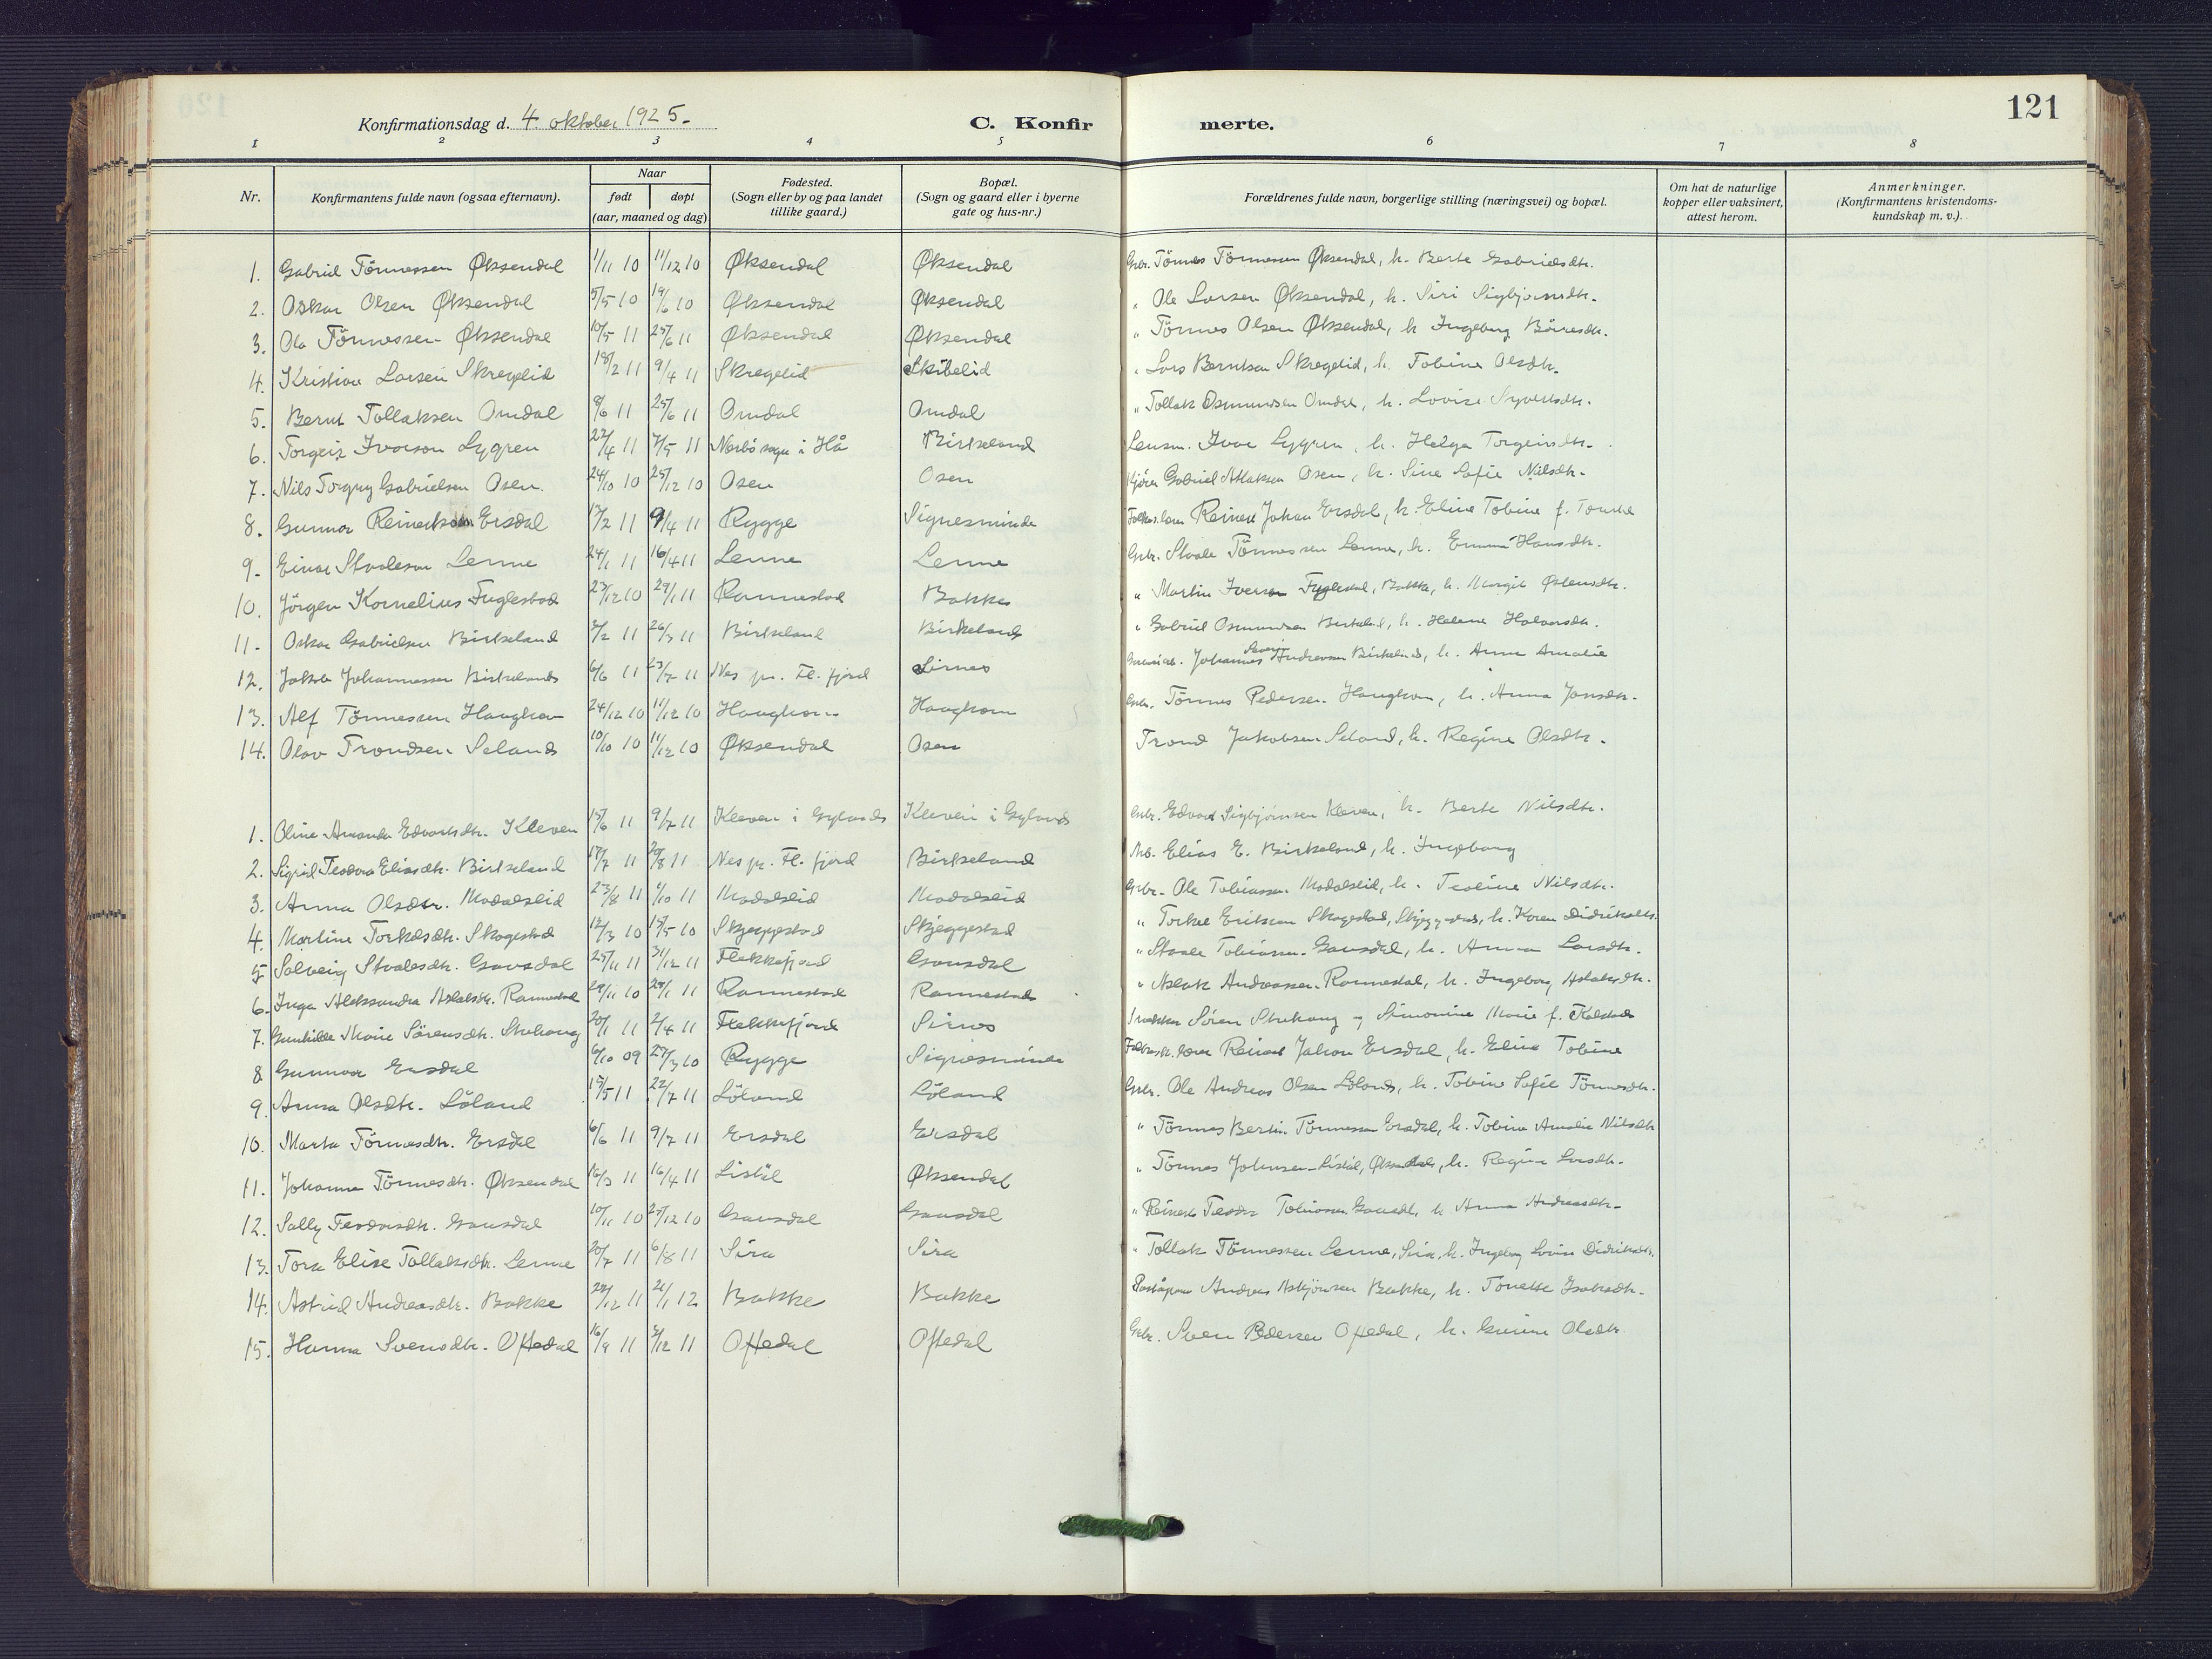 121
Konfirmationsdag d. 4 oktober 1925.
C. Konfirmerte.
1 2 3 4 5 6 7 8
Nr. Konfirmantens fulde navn (ogsaa efternavn). Naar født døpt (aar, maaned og dag) Fødested. (Sogn eller by og paa landet tillike gaard.) Bopæl. (Sogn og gaard eller i byerne gate og hus-nr.) Forældrenes fulde navn, borgerlige stilling (næringsvei) og bopæl. Om hat de naturlige kopper eller vaksinert, attest herom. Anmerkninger. (Konfirmantens kristendomskundskap m. v.).
1. Gabriel Tönnessen Øksendal 1/11 10 11/12 10 Øksendal Øksendal Gbr. Tönnes Tönnessen Øksendal, h. Berte Gabrielsdtr.
2. Oskar Olsen Øksendal 5/5 10 19/6 10 Øksendal Øksendal " Ole Larsen Øksendal, h. Siri Sigbjörnsdtr.
3. Ole Tönnessen Øksendal 10/5 11 25/6 11 Øksendal Øksendal " Tönnes Olsen Øksendal, h Ingeborg
4. Kristian Larsen Skregelid 18/2 11 9/4 11 Skregelid Skibelid " Lars Berntsen Skregelid, h. Tobine Olsdtr.
5. Bernt Tollaksen Omdal 8/6 11 25/6 11 Omdal Omdal " Tollak Osmundsen Omdal, h. Lovise Syvertsdtr.
6. Torgeir Ivarson Lygren 22/4 11 7/5 11 Nærbö sogn i Hå Birkeland Lensm. Ivar Lygren, h. Helga Torgeirsdtr.
7. Nils Torgny Gabrielsen Osen 24/10 10 25/12 10 Osen Osen Gabriel Aslaksen Osen, h. Sine Sofie Nilsdtr.
8. Gunnar Reinertsen Ersdal 12/2 11 9/4 11 Rygge Signesminde Reinert Johan Ersdal, h. Eline Tobine f.
9. Einar Staalesen Lenne 24/1 11 16/4 11 Lenne Lenne Gbr. Staale Tönnessen Lenne, h. Emma Hansdtr.
10. Jörgen Kornelius Fuglestad 23/12 10 29/1 11 Rannestad Bakke " Martin Iversen Fuglestad, Bakke, h. Margit
11. Oskar Gabrielsen Birkeland 3/2 11 26/3 11 Birkeland Birkeland " Gabriel Osmundsen Birkeland, h. Helene Halvorsdtr.
12. Jakob Johannessen Birkeland 6/6 11 23/7 11 Nes pr. Fl. fjord Sirnes Johannes Andreassen Birkeland, h. Anna Amalie
13. Alf Tönnessen Haughom 24/12 10 11/12 10 Haughom Haughom Gbr. Tönnes Pedersen Haughom, h. Anna Jonsdtr.
14. Olav Trondsen Seland 10/10 10 11/12 10 Øksendal Osen Trond Jakobsen Seland, h. Regine Olsdtr.
1. Oline Amanda Edvartsdtr. Kleven 15/6 11 9/7 11 Kleven i Gyland Kleven i Gyland Gbr. Edvard Sigbjörnsen Kleven, h. Berte Nilsdtr.
2. Sigrid Teodora Eliasdtr. Birkeland 17/7 11 20/8 11 Nes pr. Fl. fjord Birkeland Elias E. Birkeland, h. Ingeborg
3. Anna Olsdtr. Modalsleid 23/8 11 1/10 11 Modalsleid Modalsleid Gbr. Ole Tobiassen Modalsleid, h. Teoline Nilsdtr.
4. Martine Torkelsdtr. Skogestad 12/3 10 15/5 10 Skjeggestad Skjeggestad " Torkel Eriksen Skogestad, Skjeggestad, h. Karen Didriksdtr.
5. Solveig Staalesdtr. Gausdal 25/11 11 31/12 11 Flekkefjord Gausdal " Staale Tobiassen Gausdal, h. Anna Larsdtr.
6. Inga Aleksandra Aslaksdtr. Rannestad 28/11 10 29/1 11 Rannestad Rannestad " Aslak Andreassen Rannestad, h. Ingeborg Aslaksdtr.
7. Gunhilde Marie Sörensdtr. Stuhaug 20/1 11 2/4 11 Flekkefjord Sirnes Sören Stuhaug og Simonine Marie f.
8 Gunvor Ersdal 6/10 09 27/3 10 Rygge Signesminde Reinert Johan Ersdal, h. Eline Tobine
9. Anna Olsdtr. Löland 15/5 11 22/7 11 Löland Löland Gbr. Ole Andreas Olsen Löland, h. Tobine Sofie Tönnesdtr.
10. Marta Tönnesdtr. Ersdal 6/6 11 9/7 11 Ersdal Ersdal " Tönnes Bertin Tönnessen Ersdal, h. Tobine Amalie Nilsdtr
11. Johanne Tönnesdtr. Øksendal 16/3 11 16/4 11 Listöl Øksendal " Tönnes Johnsen Listöl, Øksendal, h. Regine Larsdtr.
12. Sally Teodorsdtr. Gausdal 10/11 10 25/12 10 Gausdal Gausdal " Reinert Teodor Tobiassen Gausdal, h Anna Andreasdtr.
13. Tora Elise Tollaksdtr. Lenne 20/7 11 6/8 11 Sira Sira " Tollak Tönnessen Lenne, Sira, h. Ingeborg Lovise Didriksdtr.
14. Astrid Andreasdtr. Bakke 28/12 11 21/1 12 Bakke Bakke Andreas Asbjörnsen Bakke, h. Tonette Isaksdtr.
15. Hanna Svensdtr. Oftedal 16/9 11 3/12 11 Oftedal Oftedal Gbr. Sven Pedersen Oftedal, h. Gurine Olsdtr